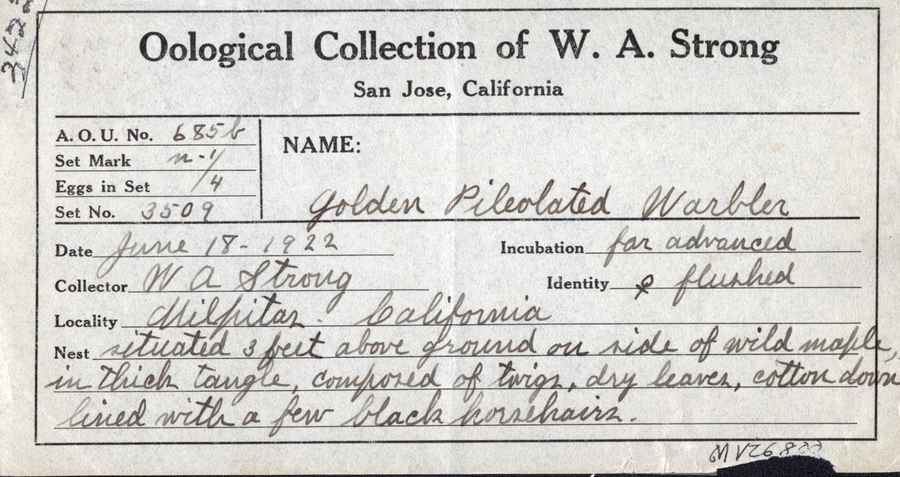 Oological Collection of W. A. Strong
San Jose, California
A. O. U. No. 685b
Set Mark n-1/4
Eggs in Set
Set No. 3509
NAME:
Golden Pileolated Warbler
Date June 18-1922
Incubation far advanced
Collector W A Strong
Identity ♀ flushed
Locality Milpitas. California
Nest situated 3 feet above ground on side of wild maple,
in thick tangle, composed of twigs, dry leaves, cotton down
lined with a few black horsehairs.